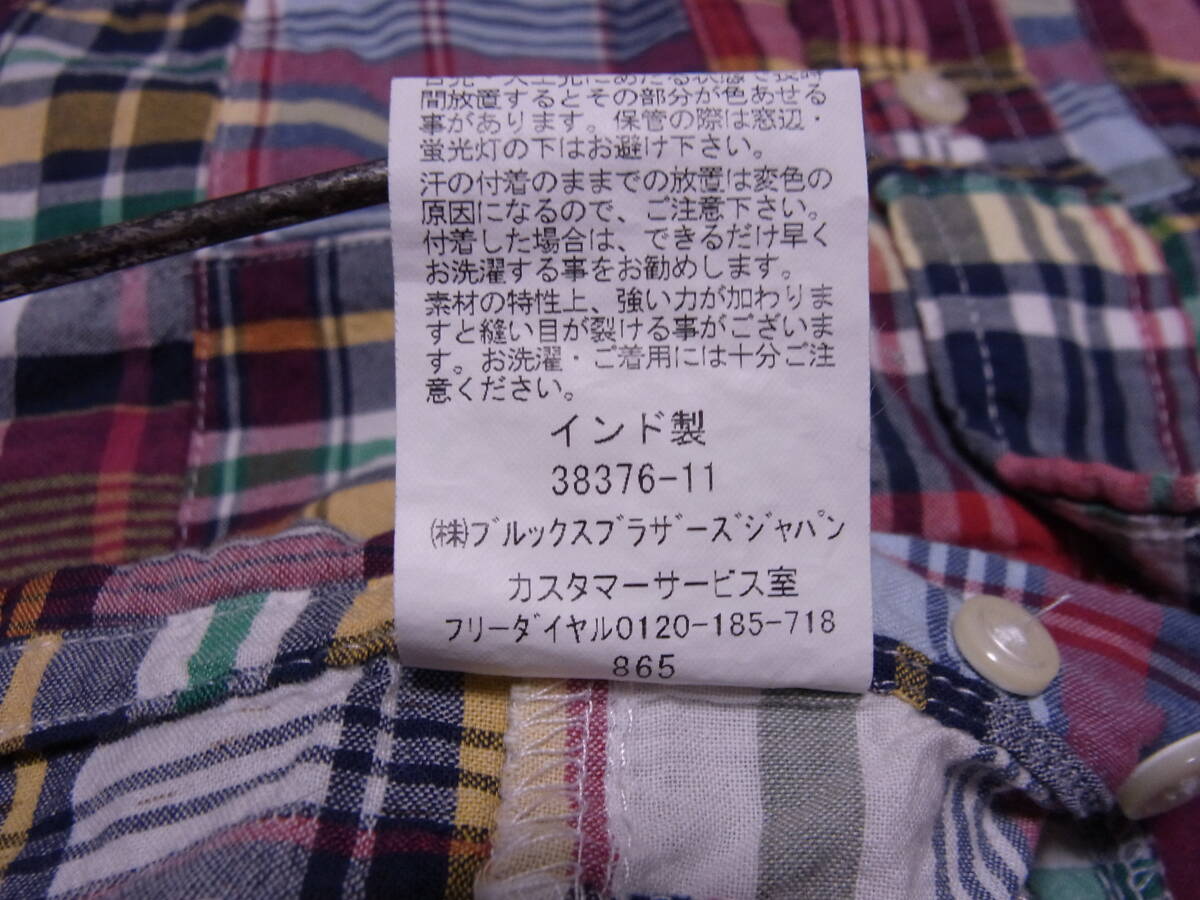 間放置するとその部分が色あせる
事があります。保管の際は窓辺・
蛍光灯の下はお避け下さい。
汗の付着のままでの放置は変色の
原因になるので、ご注意下さい。
付着した場合は、できるだけ早く
お洗濯する事をお勧めします。
素材の特性上、強い力が加わりま
すと縫い目が裂ける事がございま
す。お洗濯・ご着用には十分ご注
意ください。
インド製
38376-11
㈱ブルックスブラザーズジャパン
カスタマーサービス室
フリーダイヤル0120-185-718
865